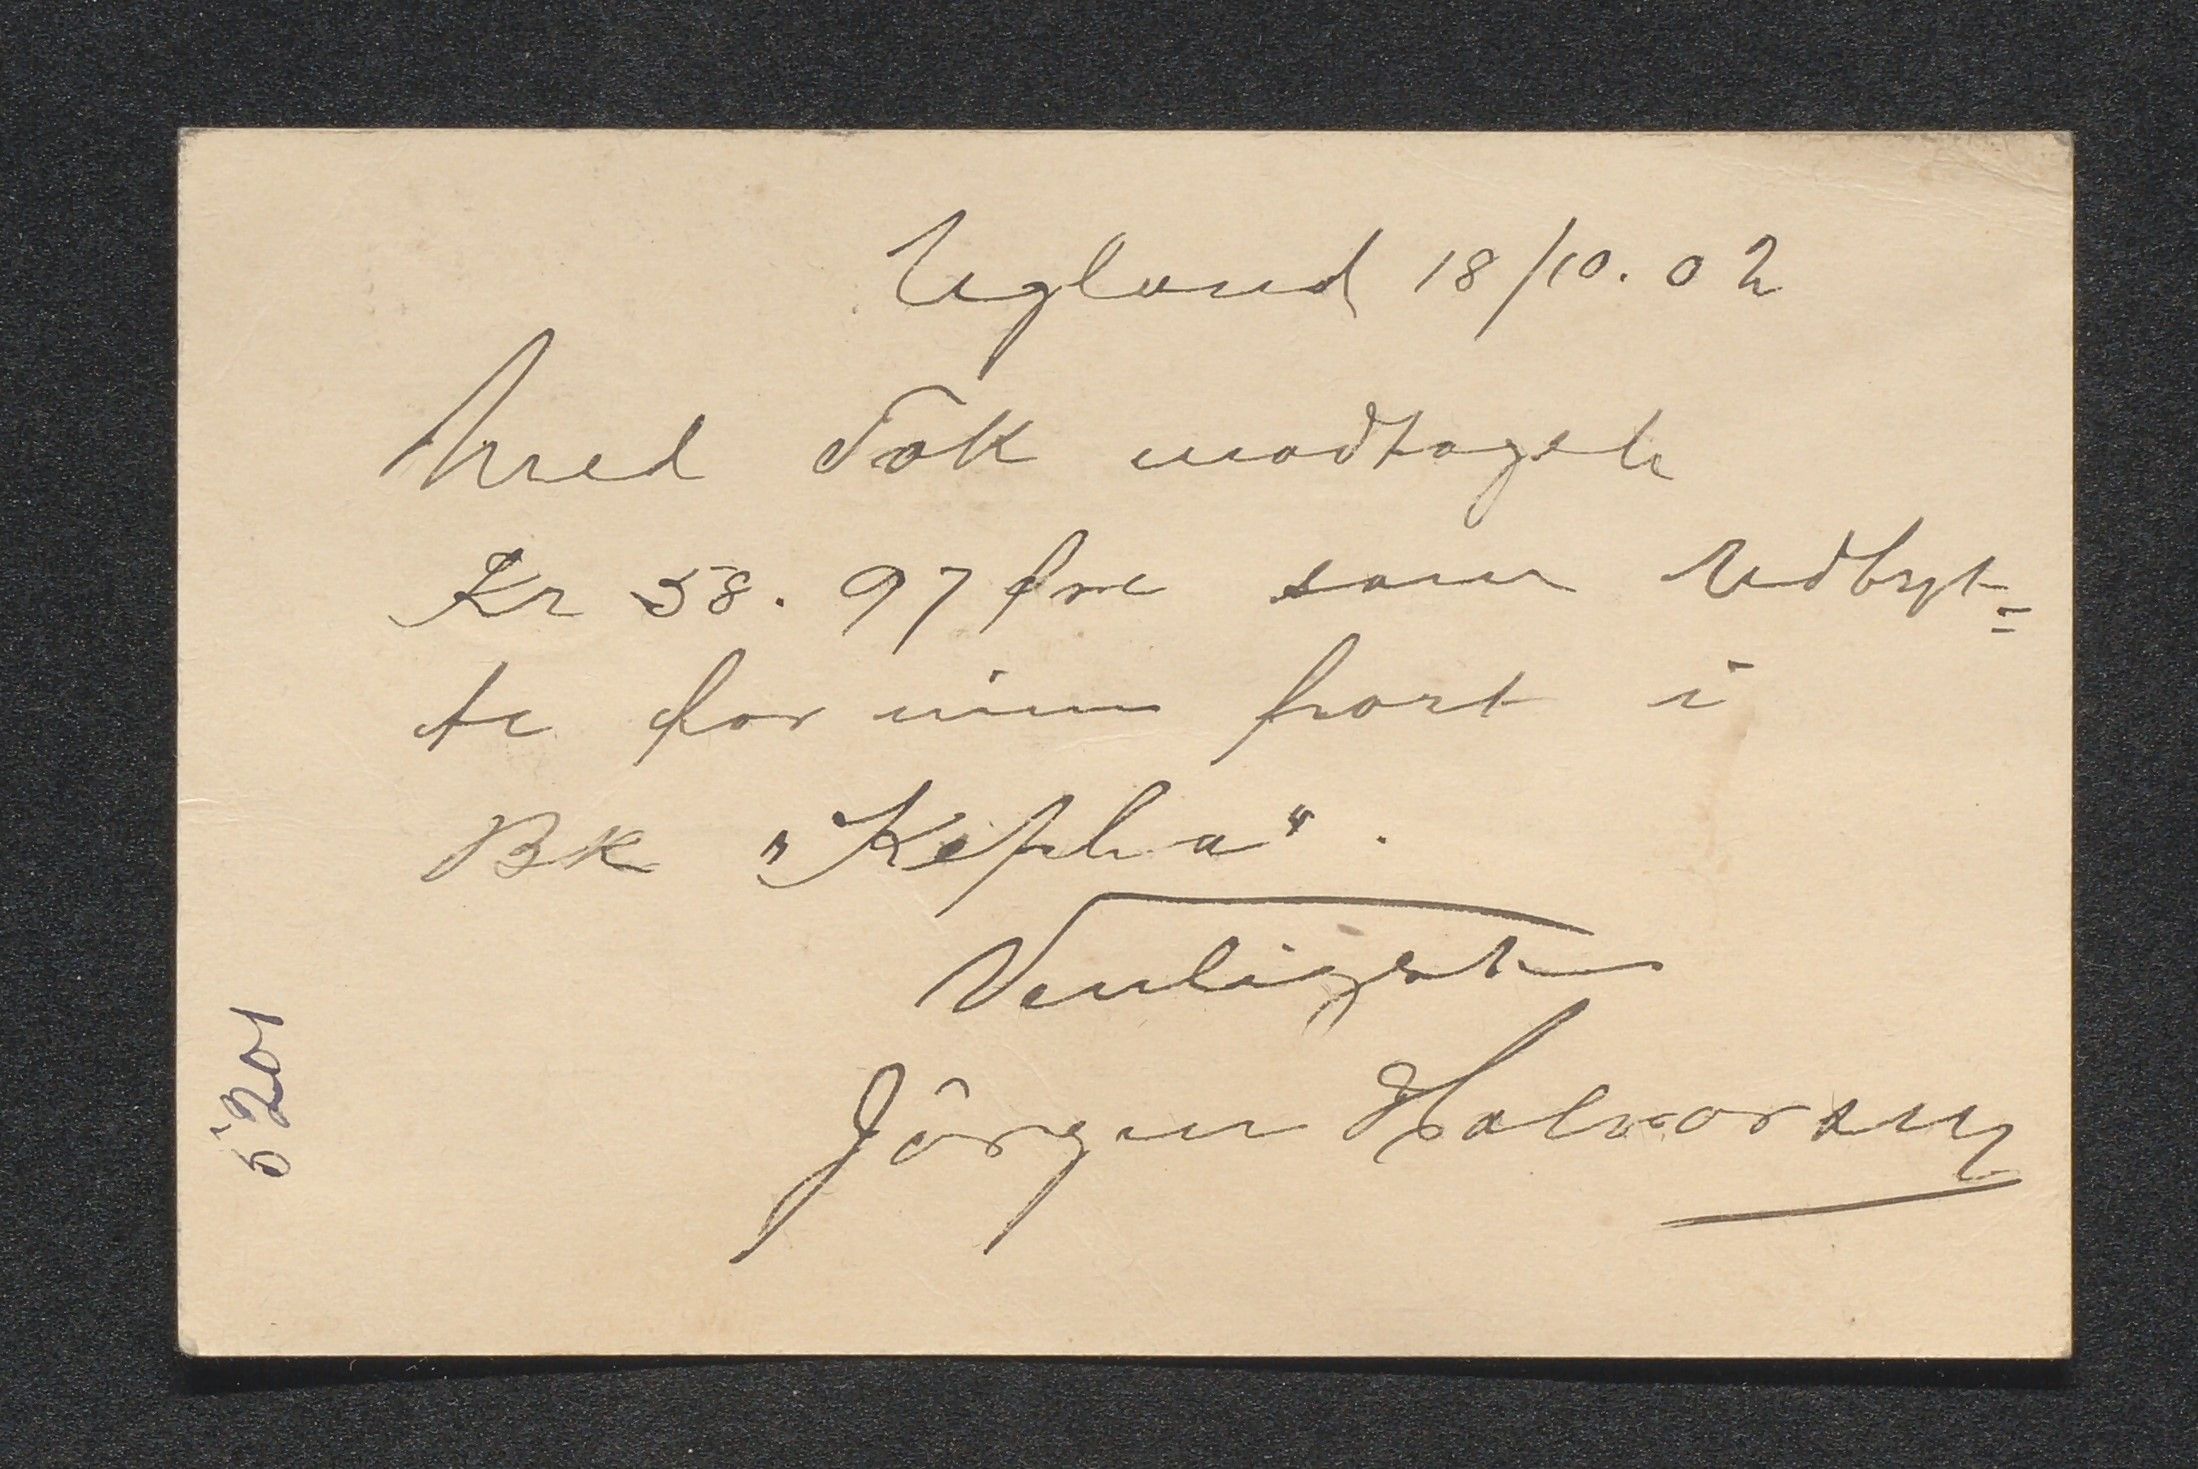 Ugland 18/10. 02
Med Tak modtaget
Kr 58. 97 øre som Udbyt=
te for min part i
Bk „Kepha".
Venligst
Jörgen Halvorsen
5201